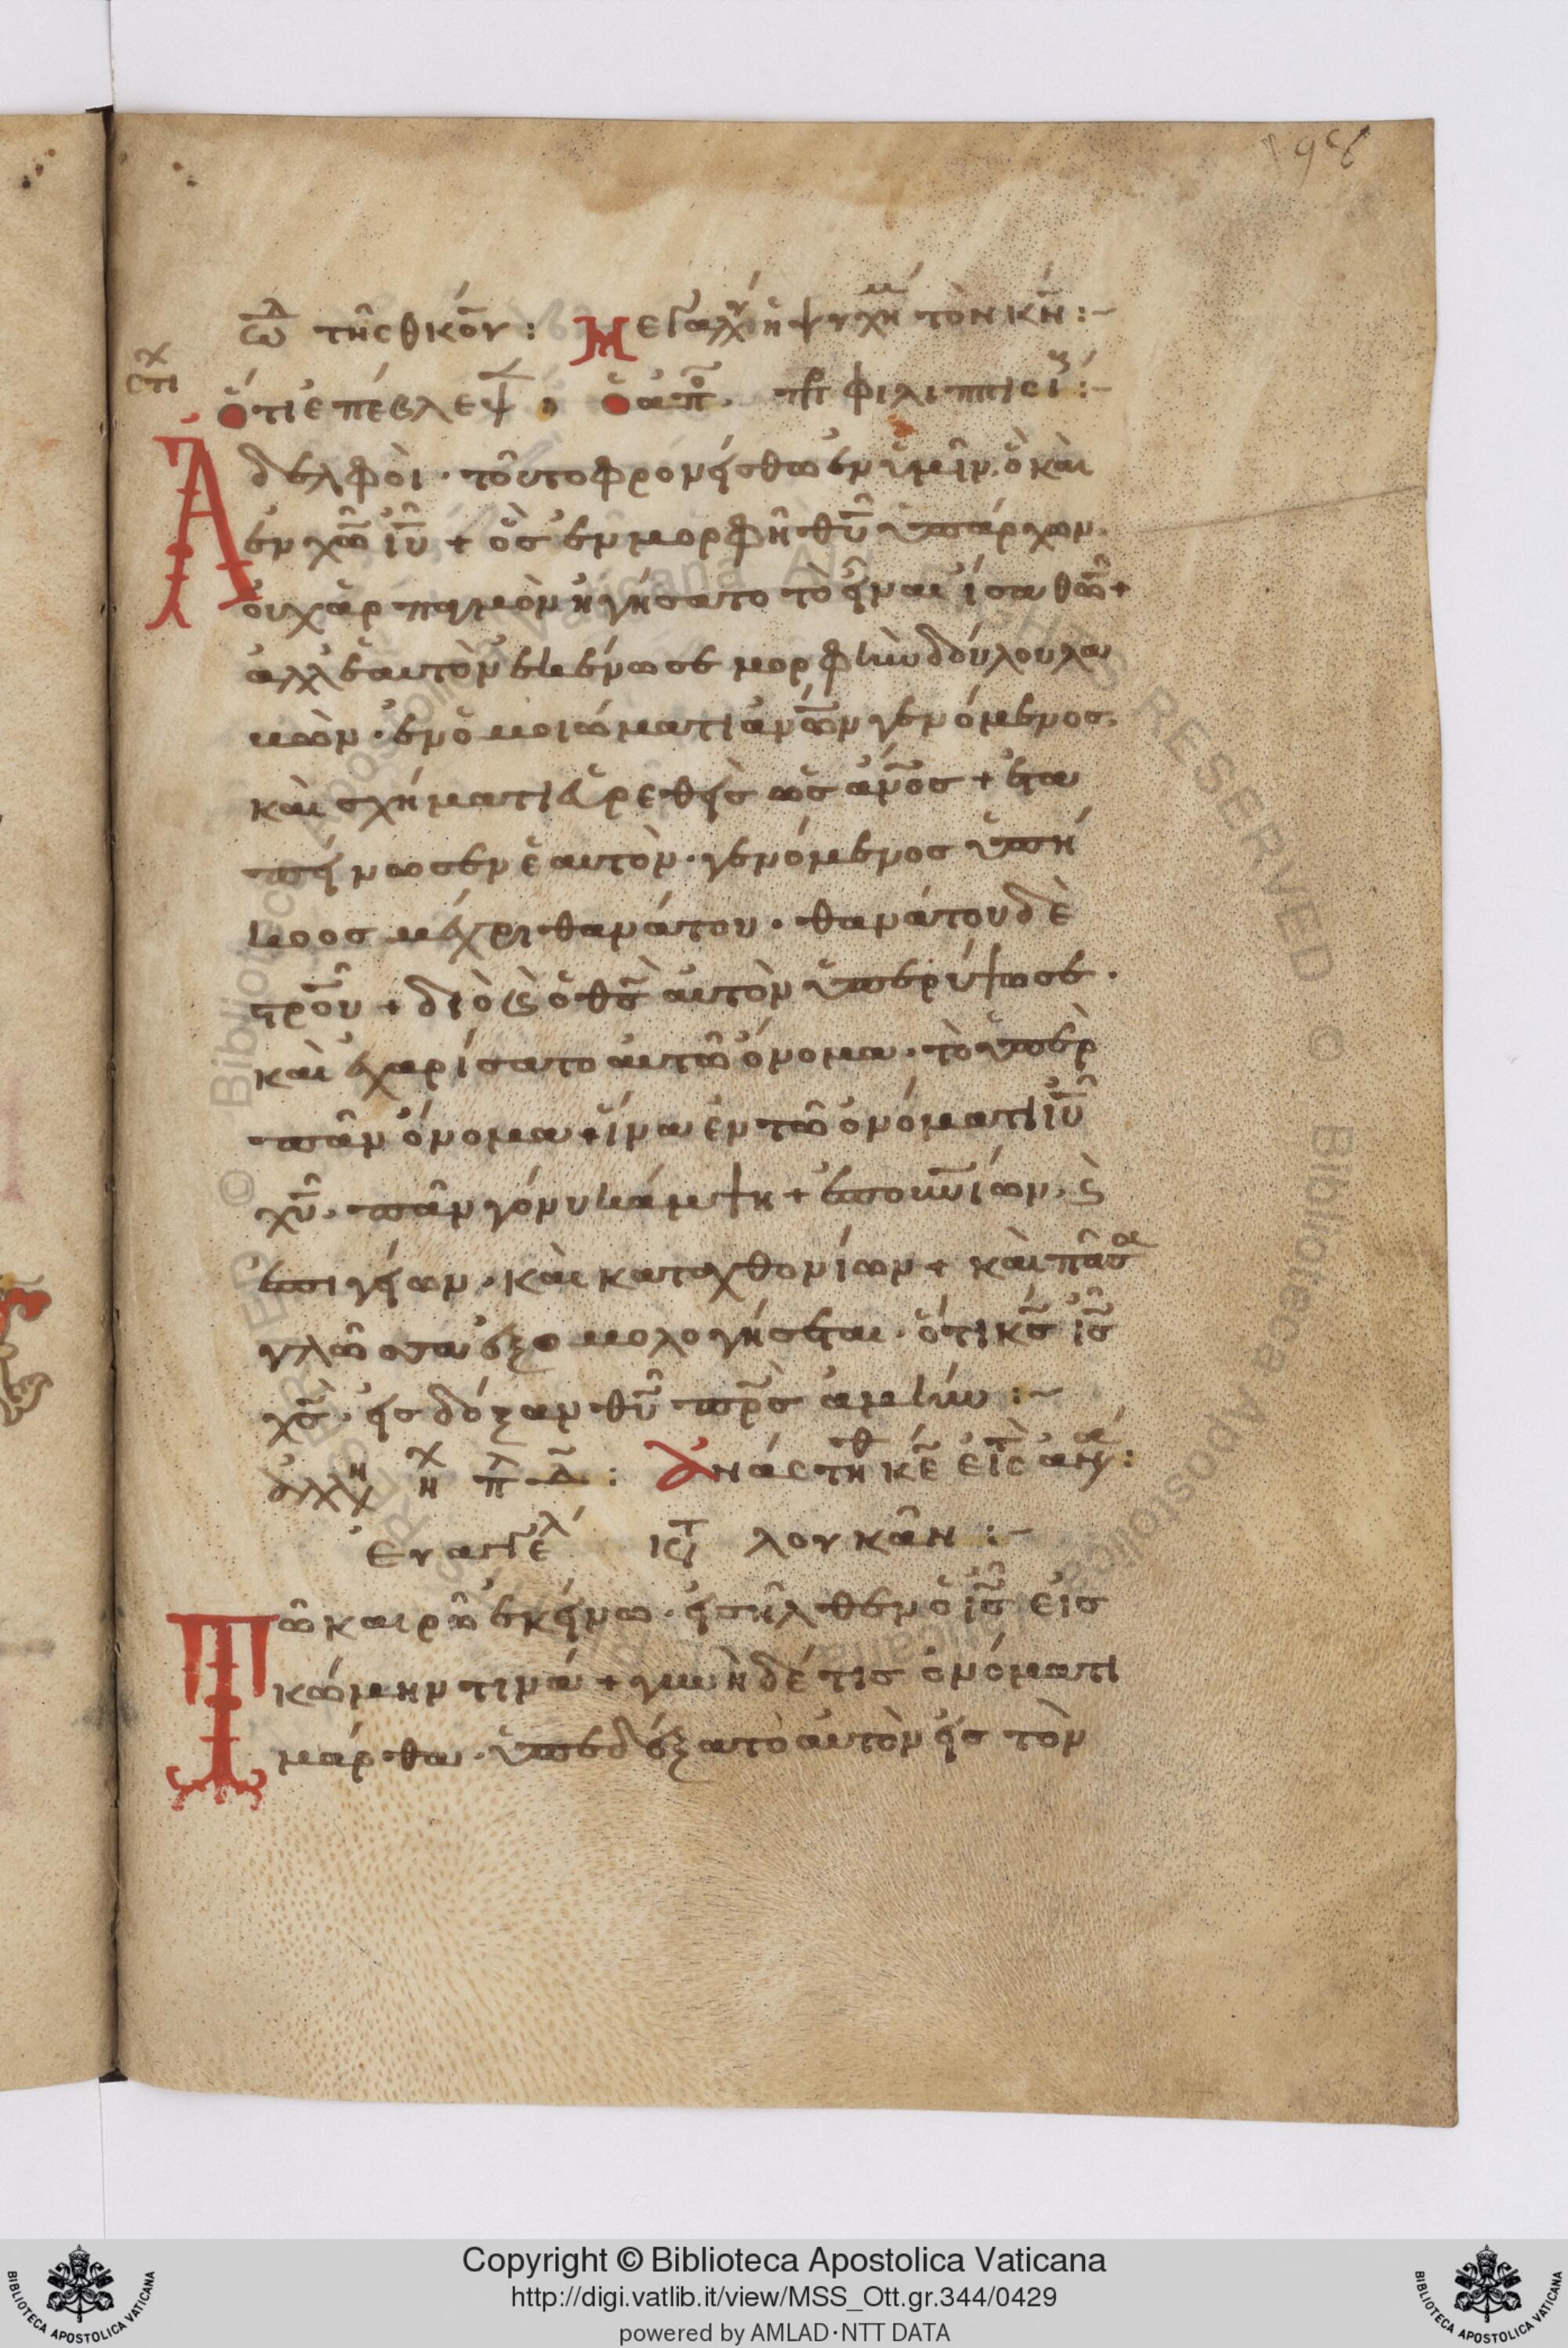 198
ὠδ τῆς θκου: Μεγαλύν ἡ ψυχή μ τὸν κν:-
στιχ
ὅτι ἐπέβλεψ: ὁ ἀπο. πρ φιλιππισί:-
Ἀδελφοὶ· τοῦτο φρονείσθω ἐν ὑμῖν· ὃ καὶ
ἐν χῶ ἰῦ + ὃς ἐν μορφῆ θῦ ὑπάρχων·
οὐχ ἁρπαγμὸν ἡγήσατο τὸ εἶναι ἴσα θῶ +
ἀλλ ἑαυτὸν ἐκένωσε μορφὴν δούλου λα
μὼν· ἐν ὁμοιώματι ἀνῶν γενόμενος·
καὶ σχήματι εὑρεθεὶς ὡς ἄνος + ἐτα
πείνωσεν ἑαυτὸν· γενόμενος ὑπή
κοος μέχρι θανάτου· θανάτου δὲ
στροῦ + διὸ ϗ ὁ θς αὐτὸν ὑπερύψωσε·
καὶ ἐχαρίσατο αὐτῶ ὄνομα· τὸ ὑπὲρ
πᾶν ὄνομα + ἵνα ἐν τῶ ὀνόματι ἰῦ
χῦ· πᾶν γόνυ κάμψη + ἐπουνίων· ϗ
ἐπιγείων· καὶ καταχθονίων + καὶ πᾶσα
γλῶσσα ἐξομολογήσεται· ὅτι κς ἰς
χς· εἰς δόξαν θῦ πρς ἀμήν:~
ἀλλη η χ πλ δ: Ἀνάστηθ κε εἰς τ ἀνά:
Εὐαγγελ κτ λουκᾶν:-
Τῶ καιρῶ ἐκείνω· εἰσῆλθεν ὁ ἰς εἰς
κώμην τινά + γυνὴ δέ τις ὀνόματι
μάρθα· ὑπεδέξατο αὐτὸν εἰς τὸν
Copyright © Biblioteca Apostolica Vaticana
http://digi.vatlib.it/view/MSS_Ott.gr.344/0429
powered by AMLAD·NTT DATA